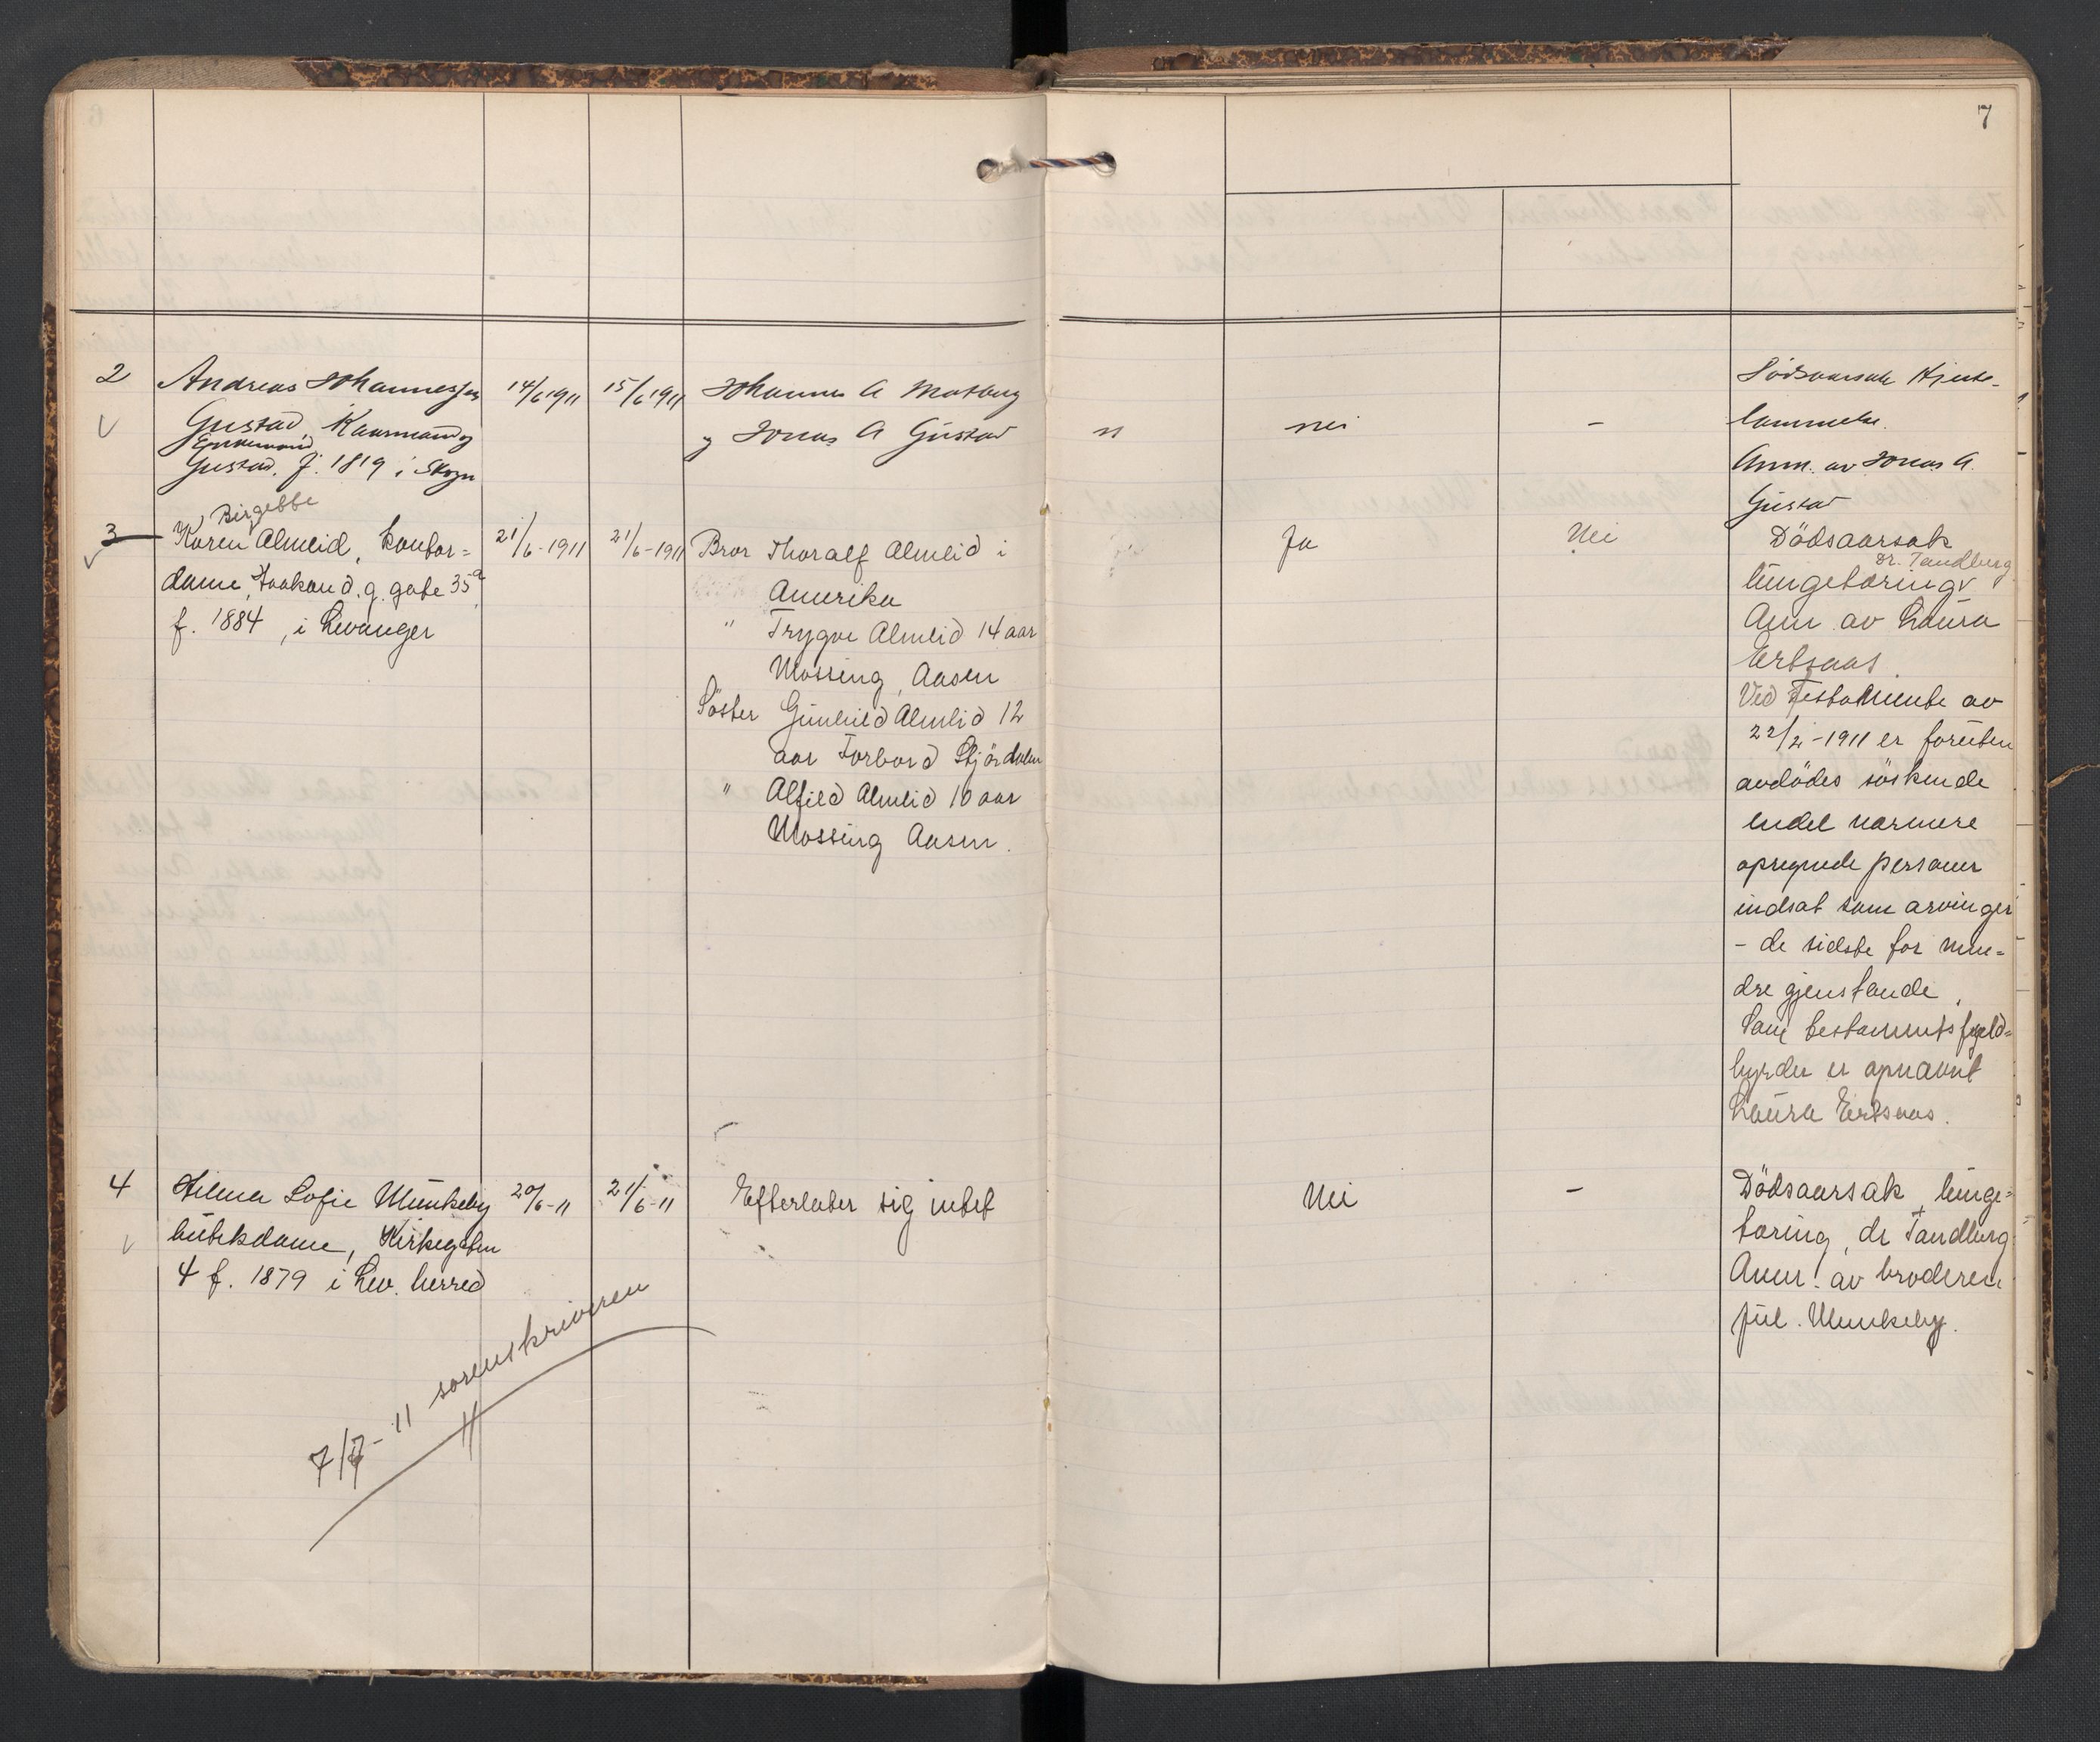 7
2
Andreas Johannessen
Gustad, Kaarmand og
Enkemand
Gustad. f. 1819 i Skogn
14/6 1911
15/6 1911
Johannes A Motberg
og Jonas A Gustad
"
nei
-
Dødsaarsak Hjerte-
lammelse.
Anm. av Jonas A.
Gustad
3
Birgitte
Karen Almlid, kontor=
dame, Haakon d. g. gate 35a
f. 1884, i Levanger
21/6-1911
21/6-1911
Bror Thoralf Almlid i
Amerika
" Trygve Almlid 14 aar
Mossing, Aasen
Søster Gunhild Almlid 12
aar Forbord Stjørdalen
" Alfild Almlid 10 aar
Mossing Aasen.
Ja
Nei
Dödsaarsak
dr. Tandberg
lungetæring
Anm. av Laura
Ertsaas
Ved Testamente av
22/2-1911 er foruten
avdödes söskende
endel nærmere
opregnede personer
indsat som arvinger
- de sidste for min=
dre gjenstande.
Som testamentsfuld=
byrder er opnævnt
Laura Ertsaas.
4
Hilma Sofie Munkeby
butikdame, Kirkegaten
4 f. 1879 i Lev. herred
20/6-11
21/6-11
Efterlater sig intet
Nei
-
Dödsaarsak, lunge=
tæring, dr Tandberg
Anm. av broderen
Jul. Munkeby.
7/7-11 sorenskriveren